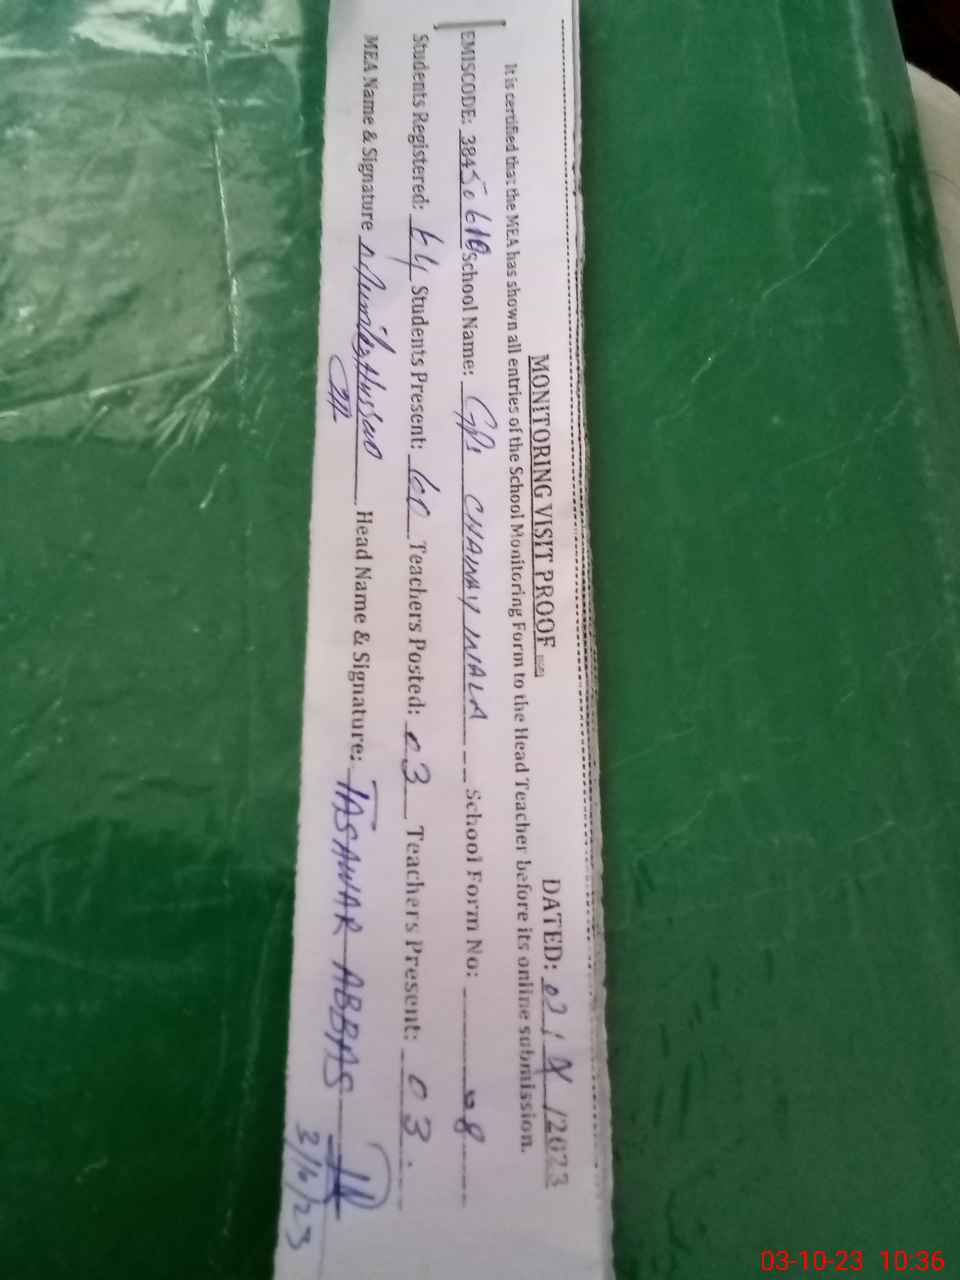 MONITORING VISIT PROOF
DATED: 03 / /2023
It is certified that the MEA has shown all entries of the School Monitoring Form to the Head Teacher before its online submission.
EMISCODE: 38450610 School Name: GPS CHAWAY WALA School Form No: 08
Students Registered: 64 Students Present: 60 Teachers Posted: 03 Teachers Present: 03.
MEA Name & Signature Hussain Head Name & Signature: TASAWAR ABBAS
3/10/23
03-10-23 10:36